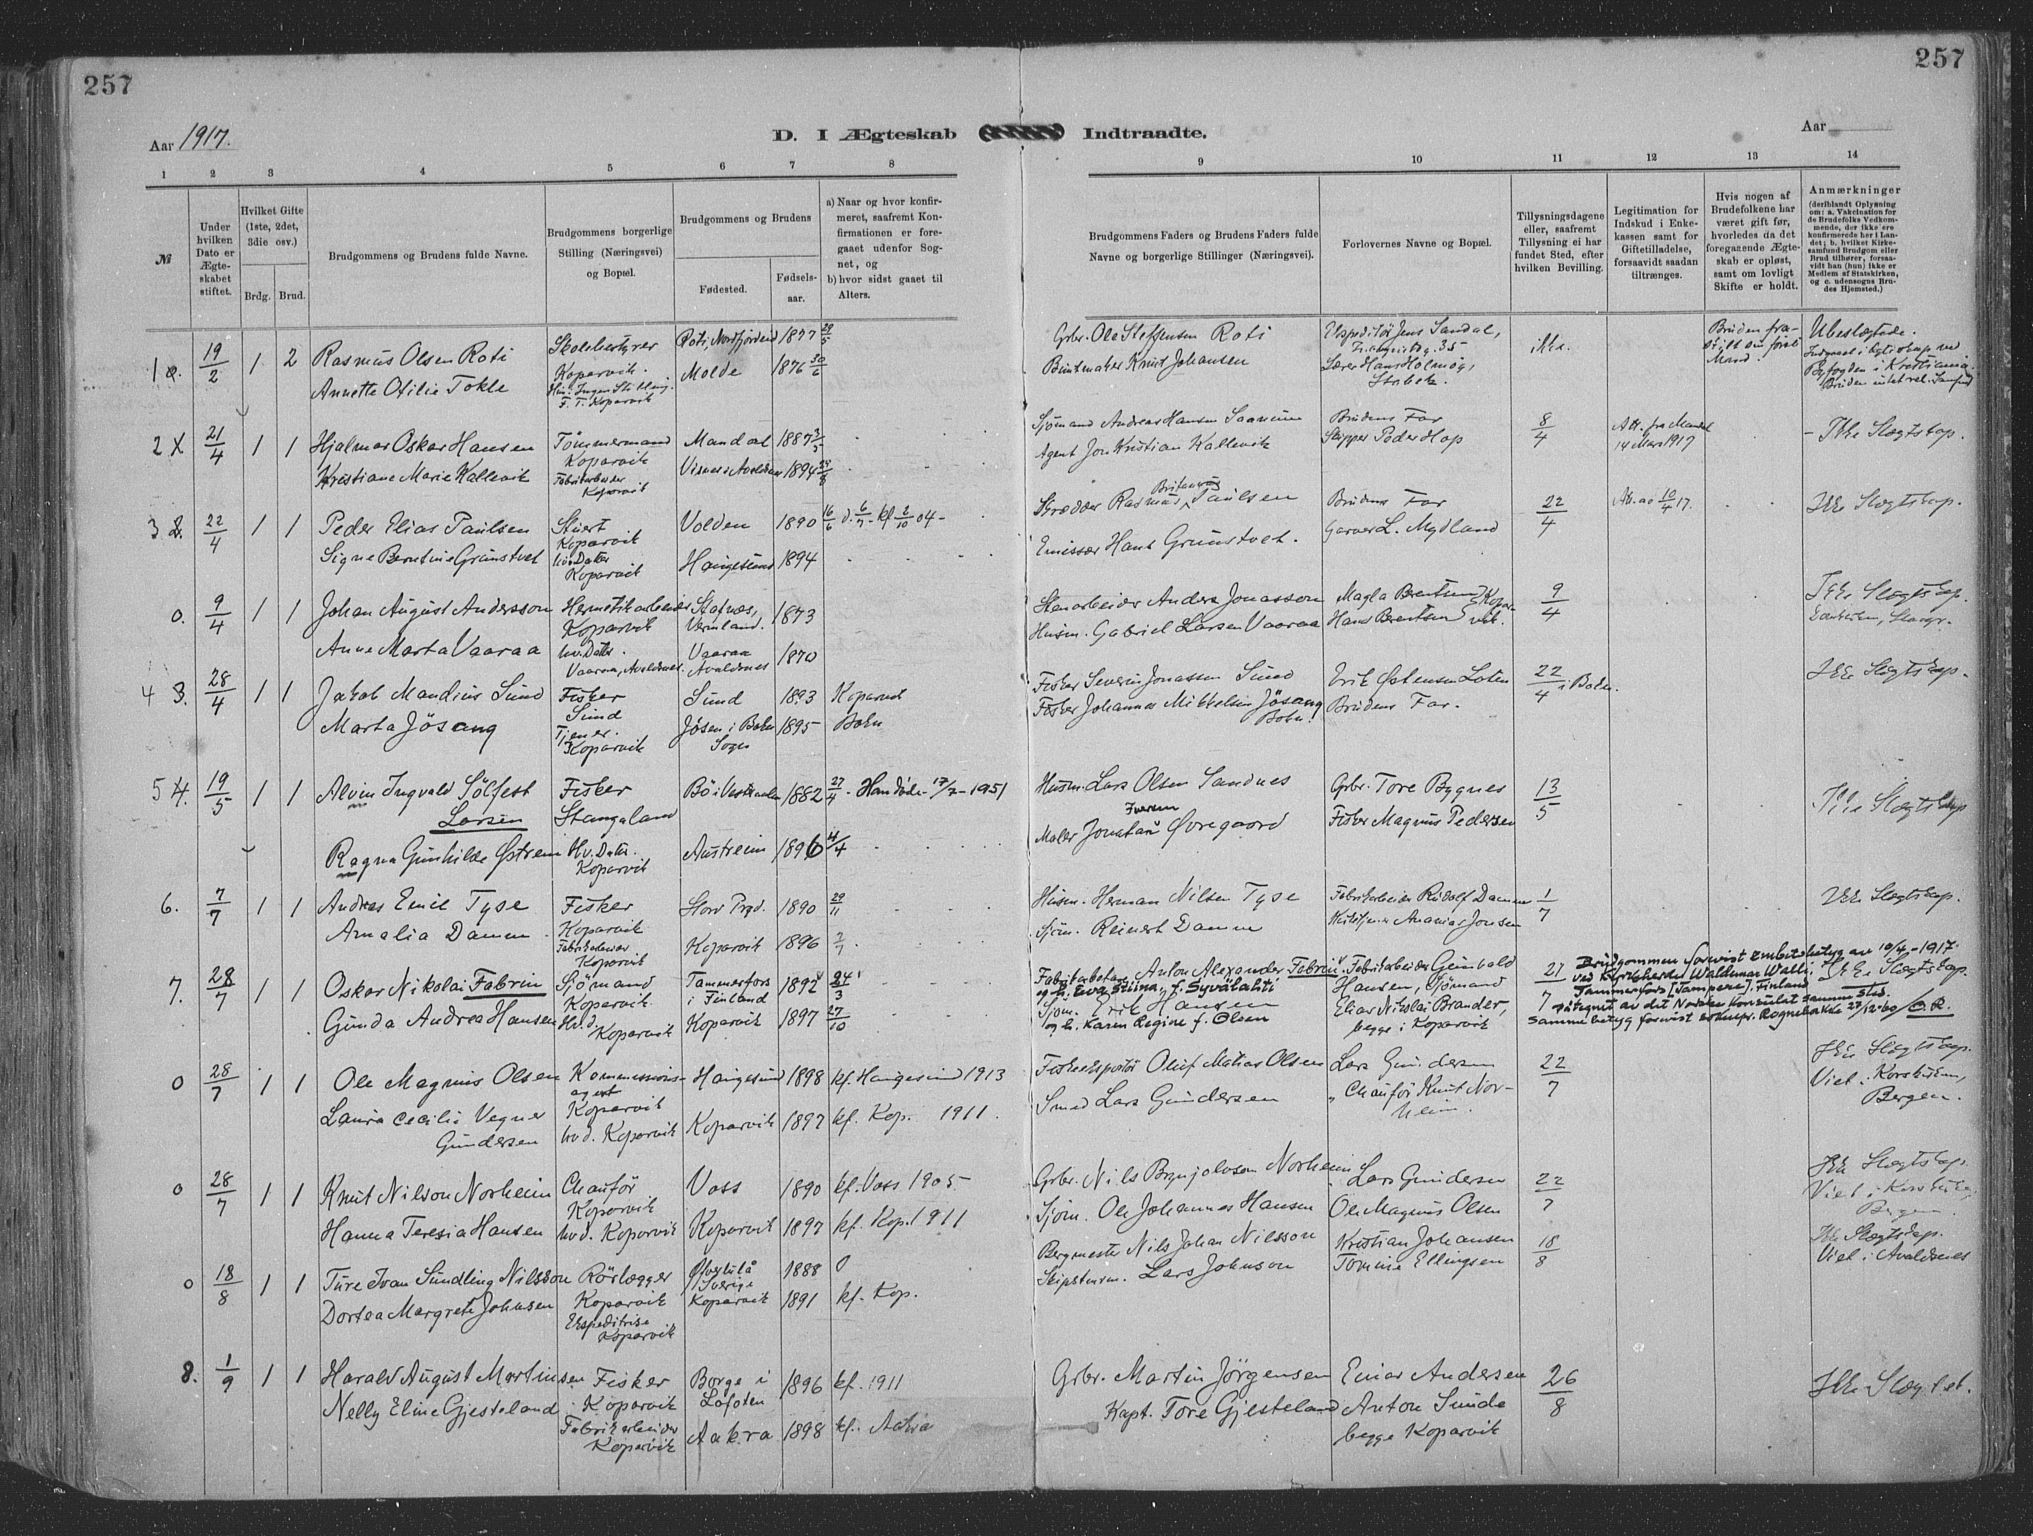 257
257
Aar 1917.
D. I Ægteskab Indtraadte.
Aar
1 2 3 4 5 6 7 8 9 10 11 12 13 14
№
Under hvilken Dato er Ægteskabet stiftet.
Hvilket Gifte (1ste, 2det, 3die osv.)
Brdg. Brud.
Brudgommens og Brudens fulde Navne.
Brudgommens borgerlige Stilling (Næringsvei) og Bopæl.
Brudgommens og Brudens
Fødested.
Fødselsaar.
a) Naar og hvor konfirmeret, saafremt Konfirmationen er foregaaet udenfor Sognet, og
b) hvor sidst gaaet til Alters.
Brudgommens Faders og Brudens Faders fulde Navne og borgerlige Stillinger (Næringsvei).
Forlovernes Navne og Bopæl.
Tillysningsdagene eller, saafremt Tillysning ei har fundet Sted, efter hvilken Bevilling.
Legitimation for Indskud i Enkekassen samt for Giftetilladelse, forsaavidt saadan tiltrænges.
Hvis nogen af Brudefolkene har været gift før, hvorledes da det foregaaende Ægteskab er opløst, samt om lovligt Skifte er holdt.
Anmærkninger
(deriblandt Oplysning om: a. Vakcination for de Brudefolks Vedkommende, der ikke ere konfirmerede her i Landet; b. hvilket Kirkesamfund Brudgom eller Brud tilhører, forsaavidt han (hun) ikke er Medlem af Statskirken, og c. udensogns Brudes Hjemsted.)
19/2 1 2 Rasmus Olsen Roti Skolebestyrer Koparvik. Roti, Nordfjordeid 1877 Gbr. Ole Steffensen Roti Ekspeditør Jens Sandal, ikke. Ubeslægtede.
Annette Otilie Tokle F. T. Koparvik Molde 1876 30/6 Buntmaker Knut Johansen
2 X 21/4 1 1 Hjalmar Oskar Hansen Tömmermand Koparvik Mandal 1887 3/5 Sjømand Andreas Hansen Brudens Far 8/4 Att. fra Mandal 14 Mars 1917 - Ikke Slægtskap.
Kristiane Marie Kallevik Fabrikarbeider Koparvik Visnes i Avaldsnes 1894 Agent Jon Kristian Kallevik Skipper Peder Hop
3 22/4 1 1 Peder Elias Paulsen Stuert Koparvik Volden 1890 16/6 Skrædder Rasmus Paulsen Brudens Far 22/4 10/4 17. Ikke Slægtskap.
Signe Berntine Grunstvet hv. Dater Koparvik Haugesund 1894 Emissær Hans Grunstvet. Garver L. Mydland
0. 9/4 1 1 Johan August Andersson Hermetikarbeider Koparvik Vermland. 1873 Stenarbeider Anders Jonasson Magla Berentsen Koparvik. 9/4 Ikke Slægtskap.
Anne Marta Vaaraa hv. Dater. Vaaraa, Avaldsnes. Vaaraa Avaldsnes 1870 Husm. Gabriel Larsen Vaaraa Hans Berentsen
4 3. 28/4 1 1 Jakob Mandius Sund Fisker Sund Sund 1893 Koparvik Fisker Severin Jonassen Sund Erik Østensen Loten 22/4 i Bokn. Ikke Slægtskap.
Marta Jösang Tjener. Koparvik Jøsen i Bokn Sogn 1895 Bokn Fisker Johannes Mikkelsen Jösang Bokn! Brudens Far.
5 4. 19/5 1 1 Alvin Ingvald Sölfest Larsen Fisker Stangaland Bö i Vesteraalen 1882 27/4 - Han døde 17/7-1951 Husm. Lars Olsen Sandnes Gbr. Tore Bygnes 13/5 Ikke Slægtskap
Ragna Gunhilde Østrem Hv. Dater. Koparvik Austreim 1896 4/4 Maler Jonatan Iversen Øvregaard Fisker Magnus Pedersen
6. 7/7 1 1 Andreas Emil Tyse Fisker Koparvik Stord Prgd. 1890 29/11 Husm. Herman Nilsen Tyse Fabrikarbeider Rudolf Damm 1/7 Ikke Slægtskap.
Amalia Damm Fabrikarbeider Koparvik Koparvik 1896 Sjöm. Reinert Damm Ananias Jonsen
7. 28/7 1 1 Oskar Nikolai Fabrin Sjømand Koparvik. Tammerfors i Finland 1892 24/3 Fabrikarbeider Anton Alexander Fabrin og h. Eva Stiina f. Syvälahti Fabrikarbeider Gunvald Hansen, Sjömand 21/7 Ikke Slægtskap.
Gunda Andrea Hansen Hv.d. Koparvik Koparvik 1897 27/10 Sjöm. Erik Hansen og h. Karen Regine f. Olsen Elias Nikolai Brander, begge i Koparvik
Brudgommen forevist Embetsbetyg av 10/4-1917 ved Kyrkoherde Waldemar Walli Tammerfors [Tampere], Finland påtegnet av det Norske Konsulat samme sted.
0 28/7 1 1 Ole Magnus Olsen Kommissionsagent Koparvik Haugesund 1898 kf. Haugesund 1913 Fiskeeksportör Oluf Matias Olsen Lars Gundersen 22/7 Ikke Slægtskap. Viet i Korskirken, Bergen.
Laura Cecilie Vegner Gundersen hv d. Koparvik Koparvik 1897 kf. Kop. 1911. Smed Lars Gundersen Chauför Knut Norheim.
0 28/7 1 1 Knut Nilson Norheim Chauför Koparvik Voss 1890 kf. Voss 1905 Gbr. Nils Brynjolvson Norheim Lars Gundersen 22/7 Ikke Slægtskap. Viet i Korskirken, Bergen.
Hanna Teresia Hansen hv d. Koparvik Koparvik 1897 kf. Kop. 1911 Sjöm. Ole Johannes Hansen Ole Magnus Olsen
0 18/8 1 1 Ture Ivan Sundling Nilsson Rörlægger Koparvik Sverige 1888 0 Bergmester Nils Johan Nilsson Kristian Johansen 18/8 Ikke Slægtskap. Viet i Avaldsnes
Dortea Margrete Johnsen Ekspeditrise Koparvik Koparvik 1891 kf. Kop. Skipstürm. Lars Johnson Tomine Ellingsen
8. 1/9 1 1 Harald August Martinsen Fisker Koparvik Borge i Lofoten 1896 kf. 1911 Gbr. Martin Jörgensen Einar Andersen 26/8 Ikke Slægtet.
Nelly Eline Gjesteland Fabrikarbeider Koparvik Aakra 1898 kf. Aakra Kapt. Tore Gjesteland Anton Sunde begge Koparvik